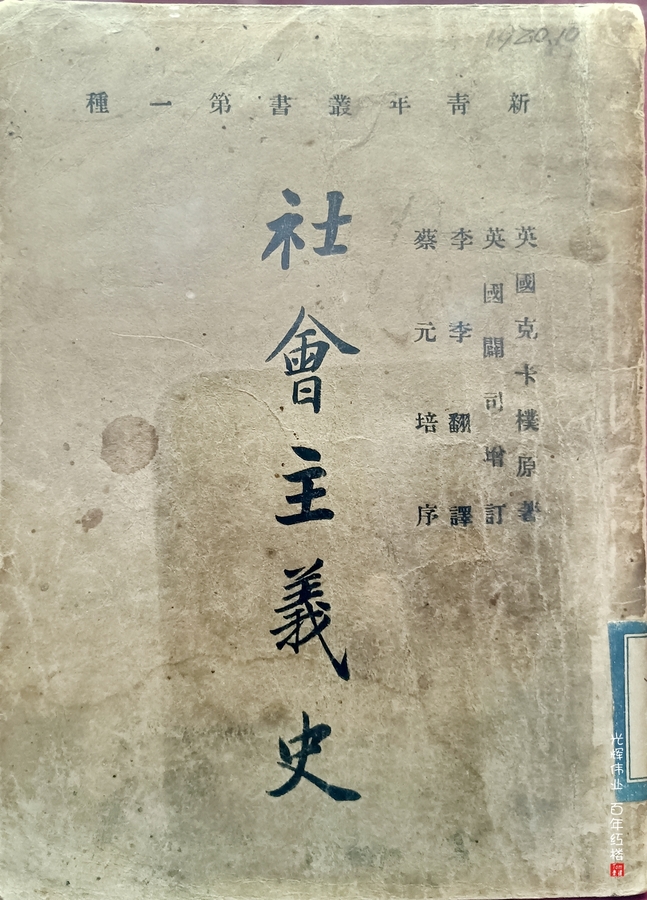 1920.10
新青年叢書第一種
英國克卡樸原著
英國闢司增訂
李季翻譯
蔡元培序
社會主義史
光辉伟业 百年红搭